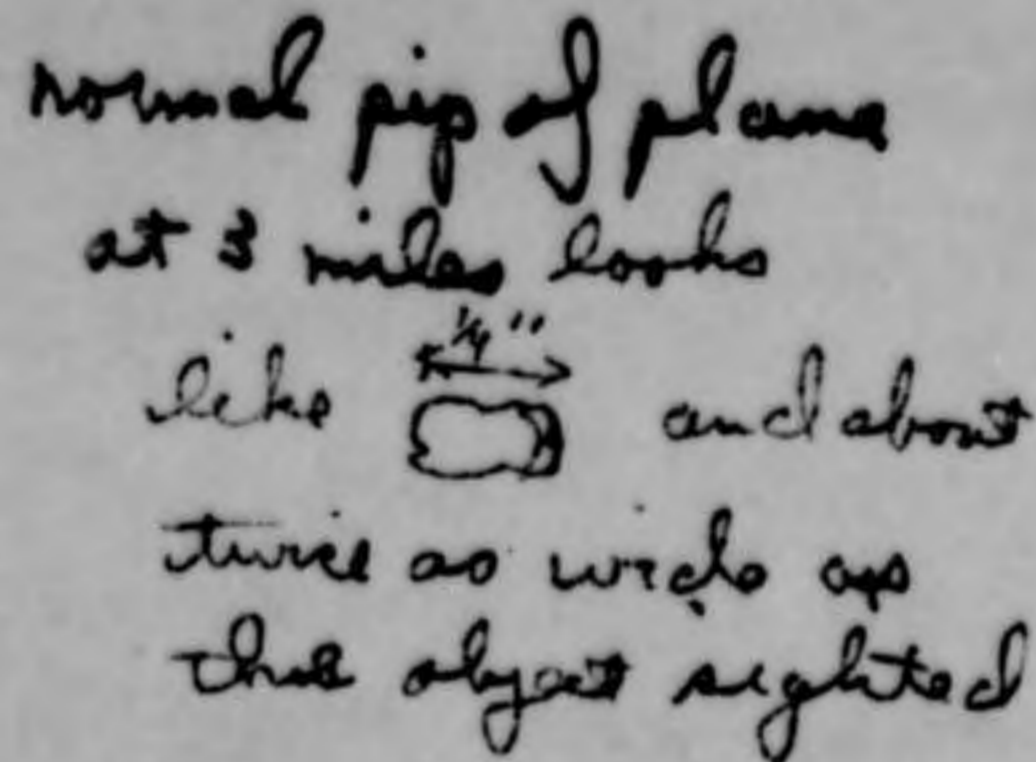 normal pip of plane
at 3 miles looks
1/4"
like and about
twice as wide as
the object sighted